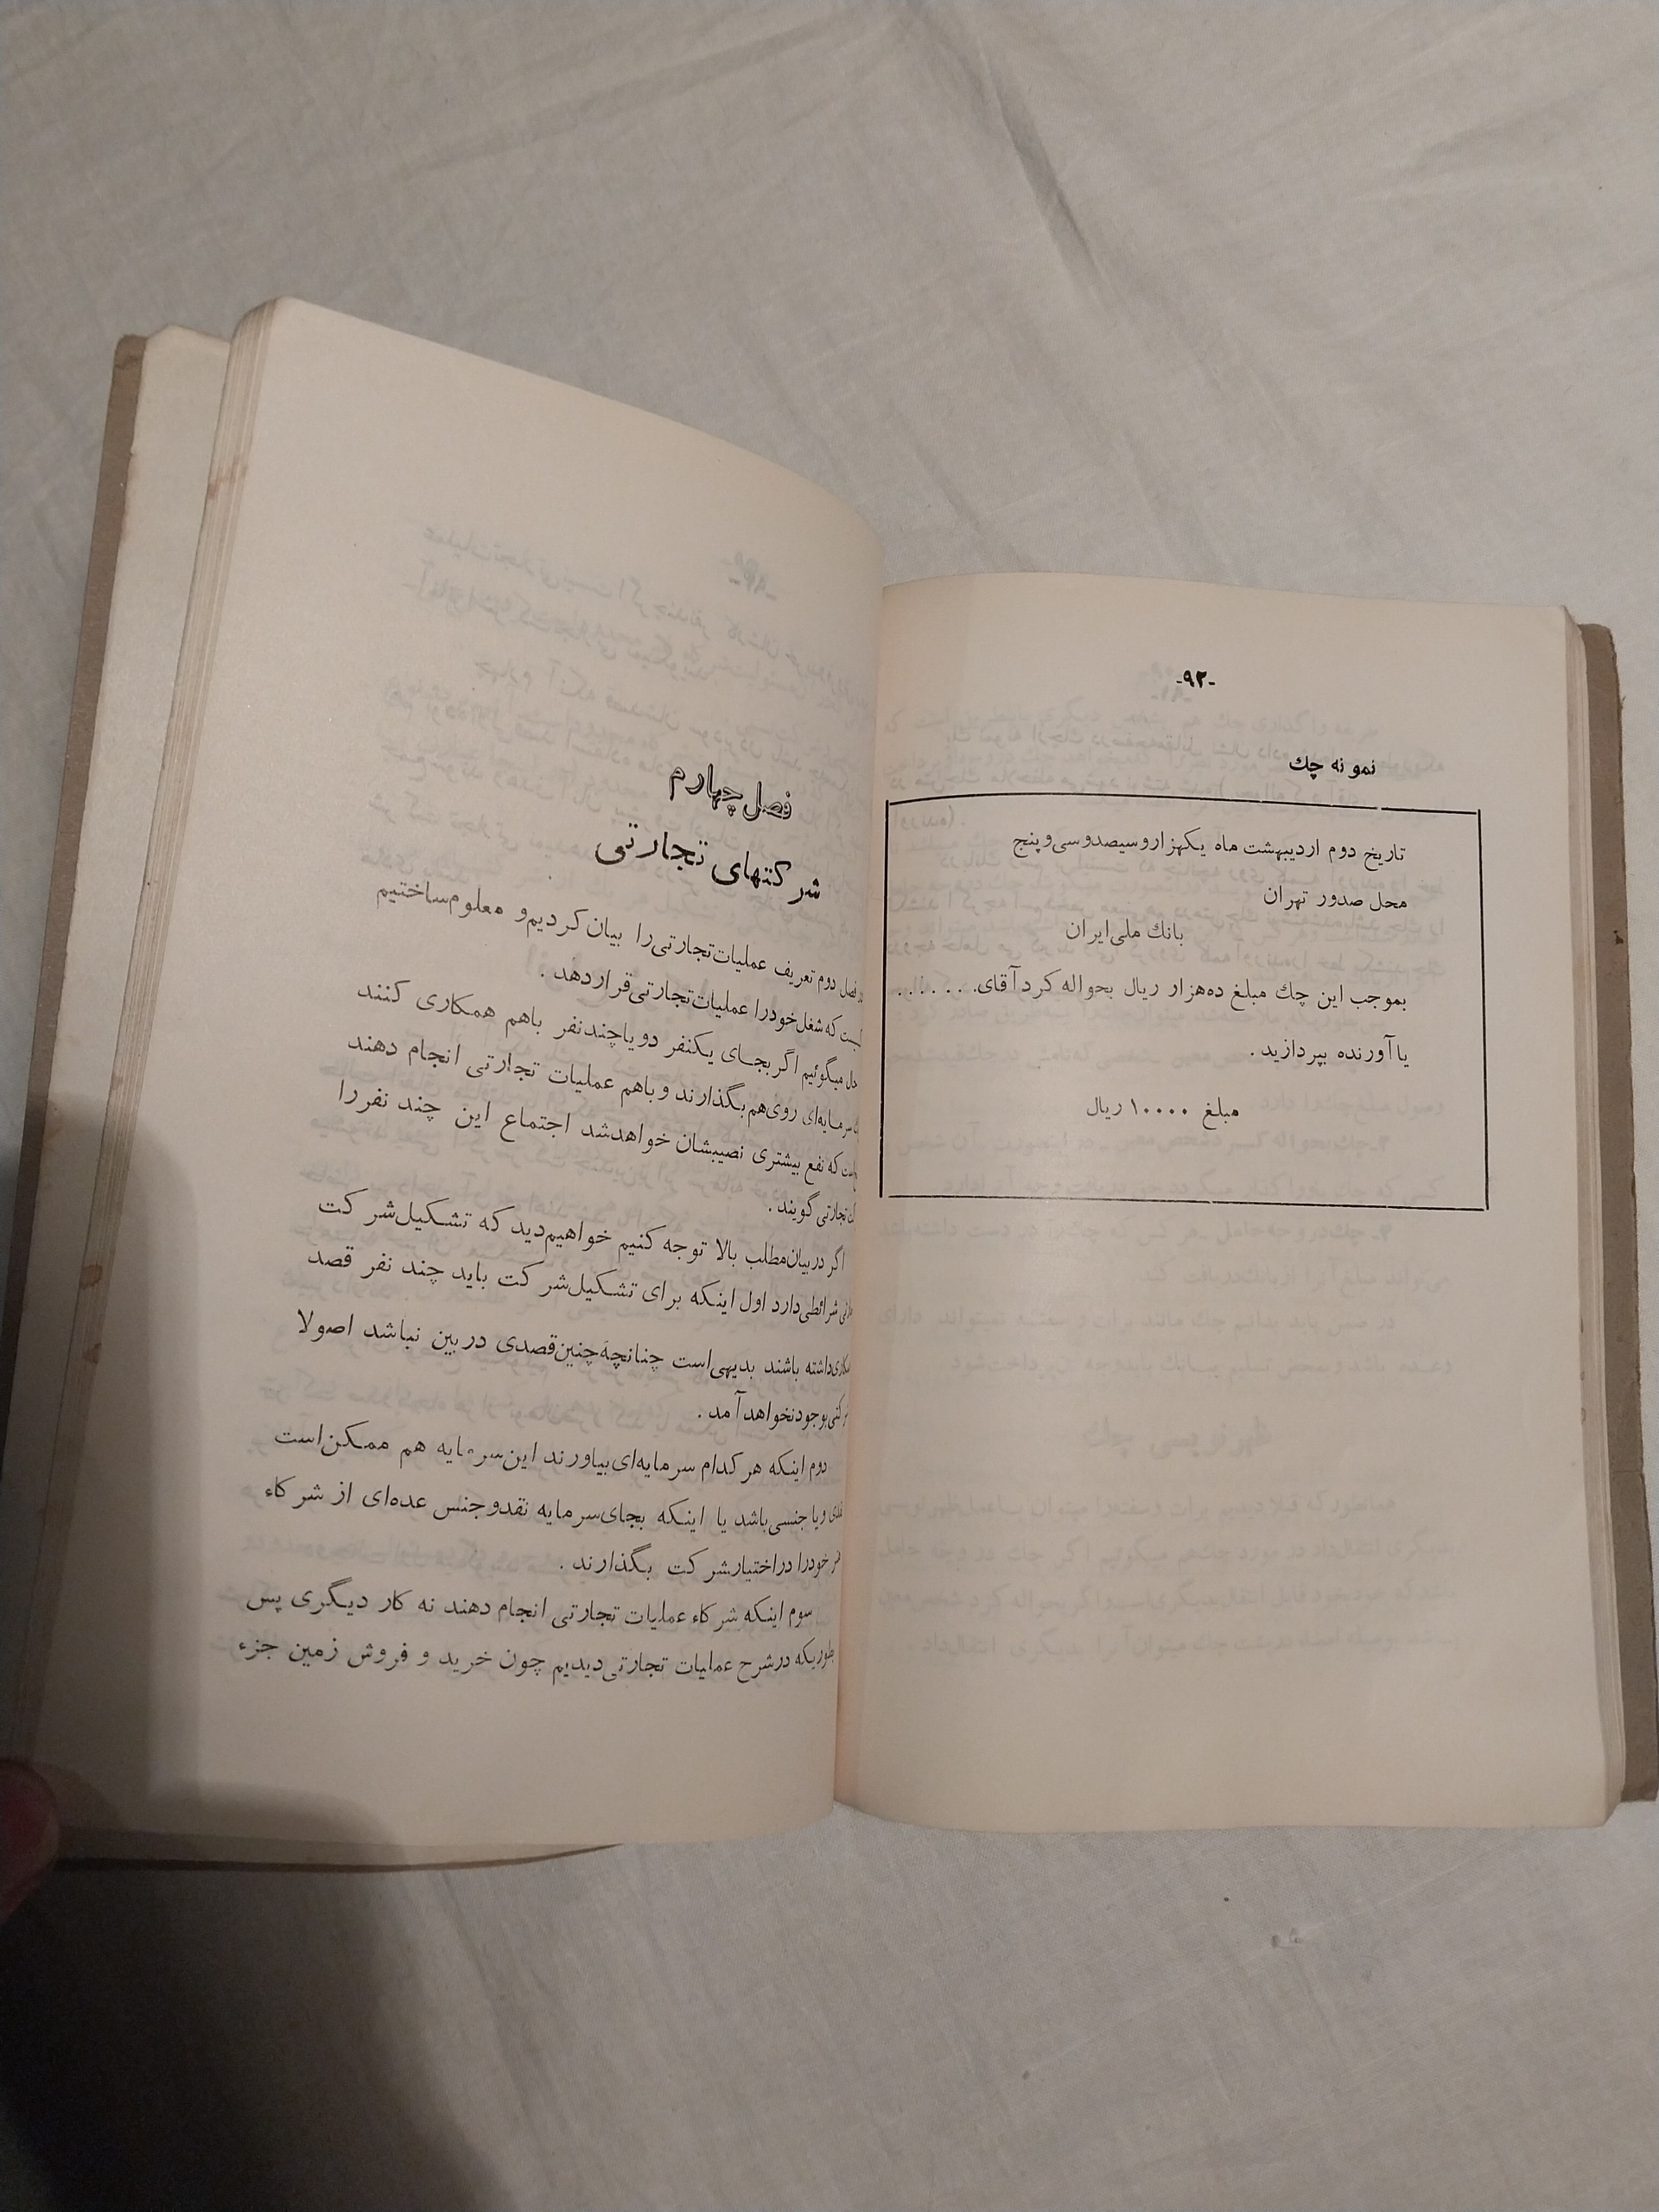 -۹۲-
نمونه چك
تاریخ دوم اردیبهشت ماه یکهزاروسیصدوسی‌وپنج
محل صدور تهران
بانك ملی‌ایران
بموجب این چك مبلغ ده‌هزار ریال بحواله کرد آقای. . . . . . .
یا آورنده بپردازید .
مبلغ ۱۰۰۰۰ ریال
فصل چهارم
شرکتهای تجارتی
فصل دوم تعریف عملیات‌تجارتی‌را بیان‌کردیم‌و معلوم‌ساختیم
که‌شغل‌خودرا عملیات‌تجارتی‌قراردهد .
میگوئیم اگربجای یکنفر دویاچندنفر باهم همکاری کنند
سرمایه‌ای روی‌هم‌بگذارند وباهم عملیات تجارتی انجام دهند
که نفع بیشتری نصیبشان خواهدشد اجتماع این چند نفررا
تجارتی گویند .
اگر دربیان‌مطلب بالا توجه کنیم خواهیم‌دید که تشکیل‌شرکت
شرائطی‌دارد اول اینکه برای تشکیل‌شرکت باید چند نفر قصد
داشته باشند بدیهی‌است چنانچه‌چنین‌قصدی دربین نباشد اصولا
بوجودنخواهدآمد .
دوم اینکه هرکدام سرمایه‌ای‌بیاورند این‌سرمایه هم ممکن‌است
ویاجنسی‌باشد یا اینکه بجای‌سرمایه نقدوجنس عده‌ای از شرکاء
خودرا دراختیارشرکت بگذارند .
سوم اینکه شرکاء عملیات تجارتی انجام دهند نه کار دیگری پس
بطوریکه درشرح عملیات تجارتی‌دیدیم چون خرید و فروش زمین جزء